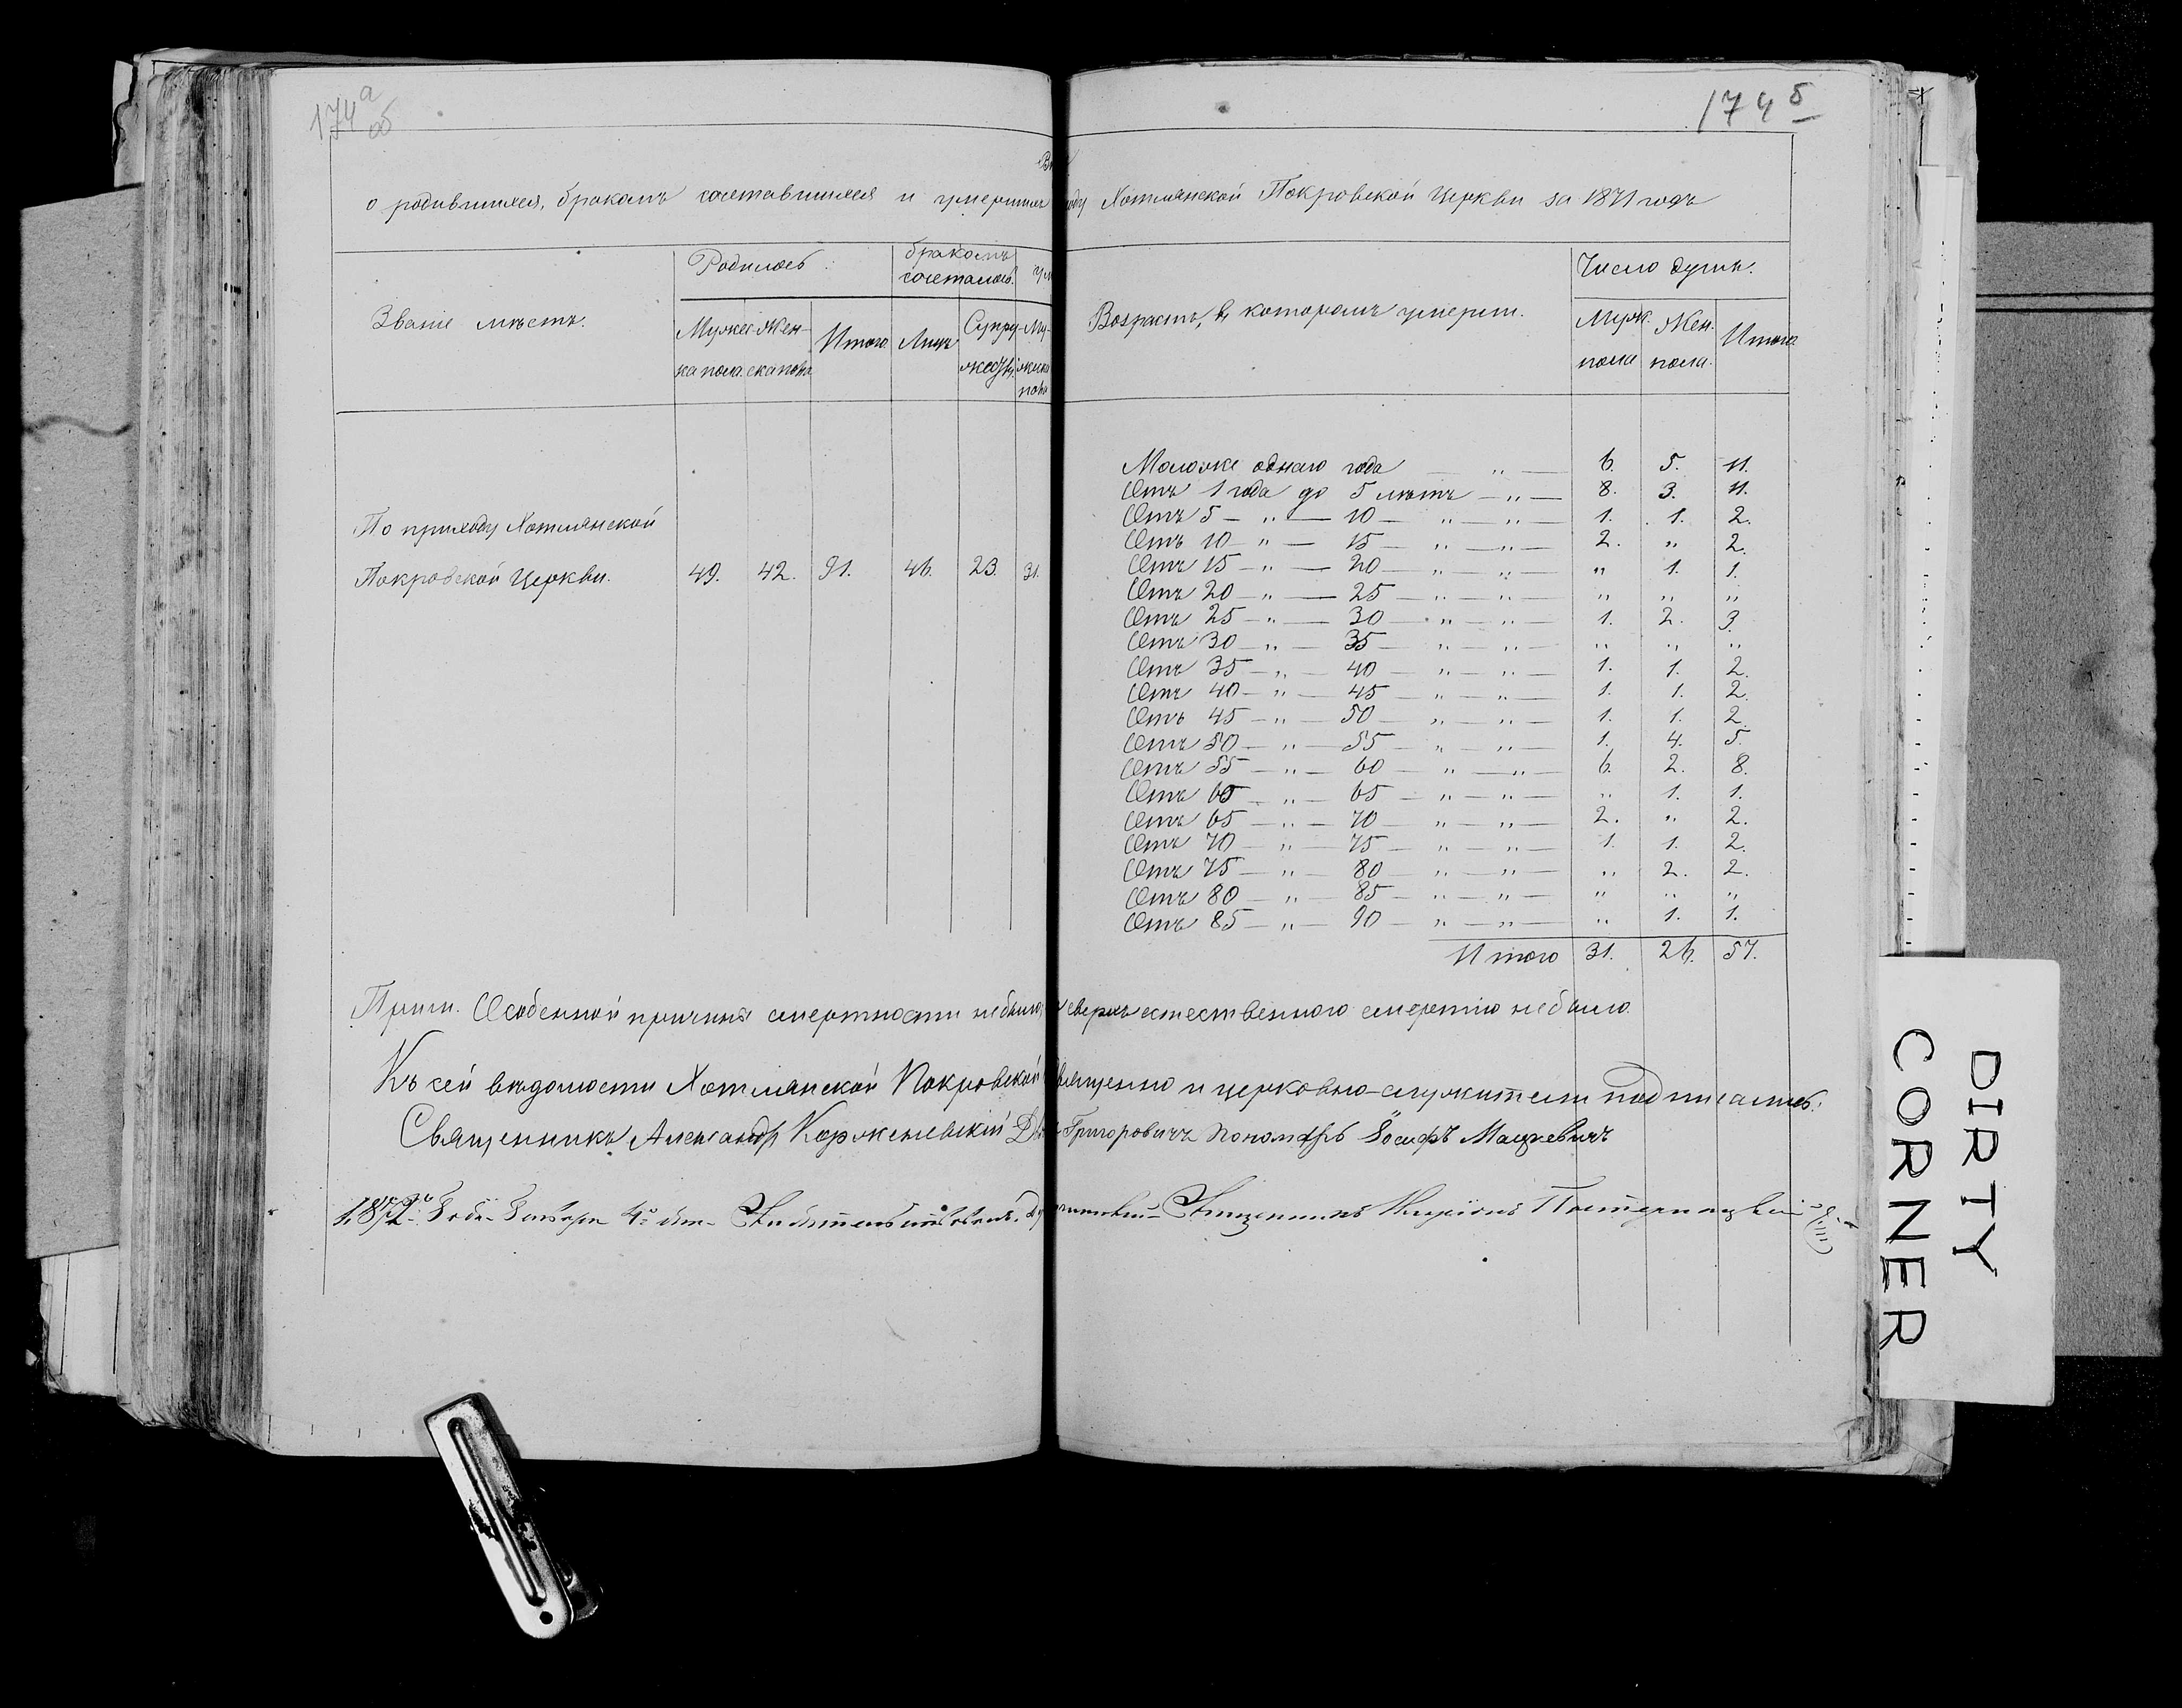 174 а об
174 б
о родившихся, бракомъ сочетавшихся и умершихъ
Хотлянской Покровской Церкви за 1871 годъ
Званіе мѣстъ.
Родилось
бракомъ сочеталось.
Мужес-ка пола.
Жен-ска пола
Итого
Лицъ
Супру-жествъ
Му-
пола
По приходу Хотлянской
Покровской Церкви. 49. 42. 91. 46. 23. 31.
Возрастъ, въ которомъ умерли.
Число душъ.
Муж. пола
Жен. пола.
Итого
Моложе одного года — „ — 6. 5. 11.
Отъ 1 года до 5 лѣтъ — „ — 8. 3. 11.
Отъ 5 — „ — 10 — „ — „ — 1. 1. 2.
Отъ 10 — „ — 15 — „ — „ — 2. „ 2.
Отъ 15 — „ — 20 — „ — „ — „ 1. 1.
Отъ 20 — „ — 25 — „ — „ — „ „ „
Отъ 25 — „ — 30 — „ — „ — 1. 2. 3.
Отъ 30 — „ — 35 — „ — „ — „ „ „
Отъ 35 — „ — 40 — „ — „ — 1. 1. 2.
Отъ 40 — „ — 45 — „ — „ — 1. 1. 2.
Отъ 45 — „ — 50 — „ — „ — 1. 1. 2.
Отъ 50 — „ — 55 — „ — „ — 1. 4. 5.
Отъ 55 — „ — 60 — „ — „ — 6. 2. 8.
Отъ 60 — „ — 65 — „ — „ — „ 1. 1.
Отъ 65 — „ — 70 — „ — „ — 2. „ 2.
Отъ 70 — „ — 75 — „ — „ — 1. 1. 2.
Отъ 75 — „ — 80 — „ — „ — „ 2. 2.
Отъ 80 — „ — 85 — „ — „ — „ „ „
Отъ 85 — „ — 90 — „ — „ — „ 1. 1.
Итого 31. 26. 57.
Прим. Особенной причины смертности небыло, сверхъестественною смертію небыло.
Къ сей вѣдомости Хотлянской Покровской священно и церковно-служители подписались:
Священникъ Александръ Корженевскій Григоровичъ Пономарь Іосифъ Мацкевичъ
1872 Года Января 4 дня Священникъ
DIRTY CORNER